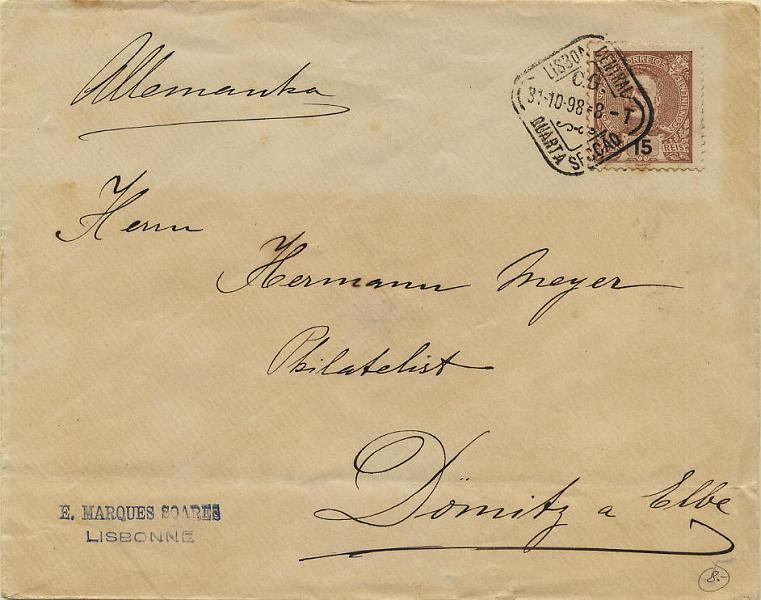 Allemanha
LISBOA CENTRAL
31-10-98 8-T
QUARTA SECÇÃO
CORREIOS
15 REIS
Herrn
Hermann Meyer
Philatelist
Dömitz a Elbe
E. MARQUES SOARES
LISBONNE
8.-